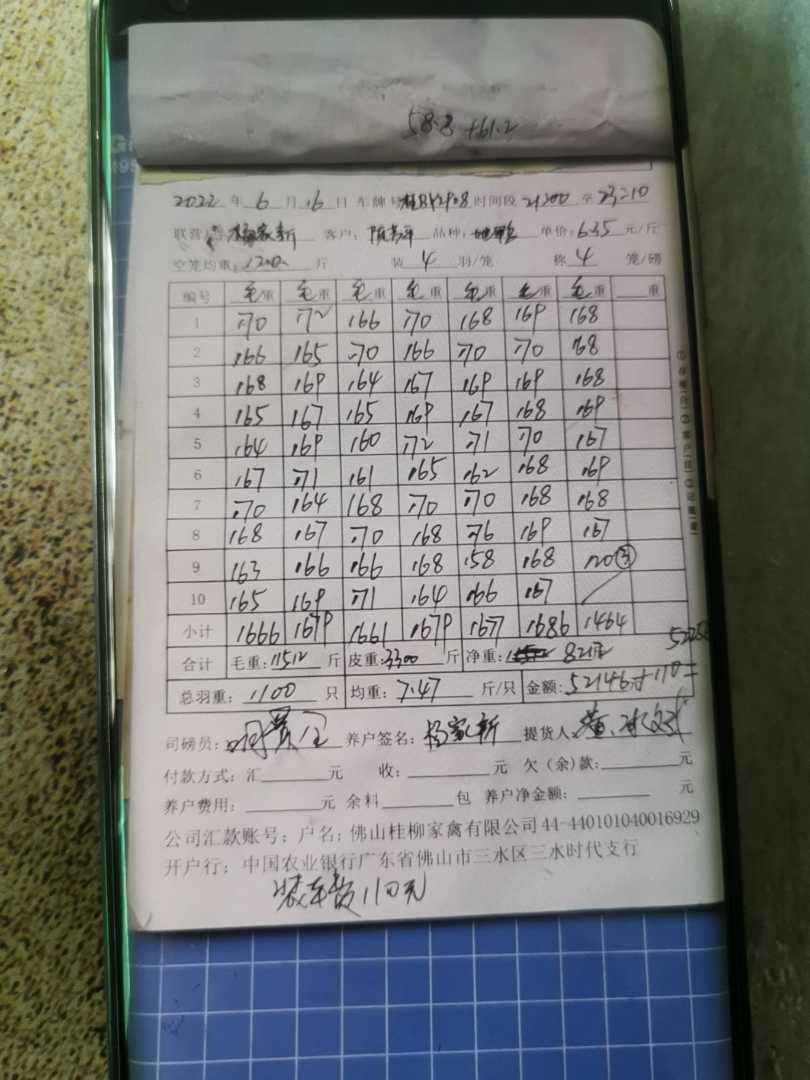 58.8 +61.2
2022 年 6 月 16 日 车牌号 时间段 至 23=10
联营 杨家新 客户: 品种: 单价: 6.35 元/斤
空笼均重: 1200 斤 装 4 羽/笼 称 4 笼/磅
编号 毛重 毛重 毛重 毛重 毛重 毛重 毛重 重
1 170 172 166 170 168 169 168
2 166 165 170 166 170 170 168
3 168 169 164 167 169 169 168
4 165 167 165 169 167 168 169
5 164 169 160 172 171 170 167
6 167 171 161 165 162 168 169
7 170 164 168 170 170 168 168
8 168 167 170 168 176 169 167
9 163 166 166 168 158 168 120③
10 165 169 171 164 166 167
小计 1666 1679 1661 1679 1677 1686 1464
合计 毛重: 11512 斤 皮重: 3300 斤 净重: 8212
总羽重: 1100 只 均重: 7.47 斤/只 金额: 52146 + 110 =
司磅员: 养户签名: 杨家新 提货人:
付款方式: 汇 元 收: 元 欠(余)款: 元
养户费用: 元 余料 包 养户净金额: 元
公司汇款账号: 户名: 佛山桂柳家禽有限公司 44-440101040016929
开户行: 中国农业银行广东省佛山市三水区三水时代支行
装车费110元